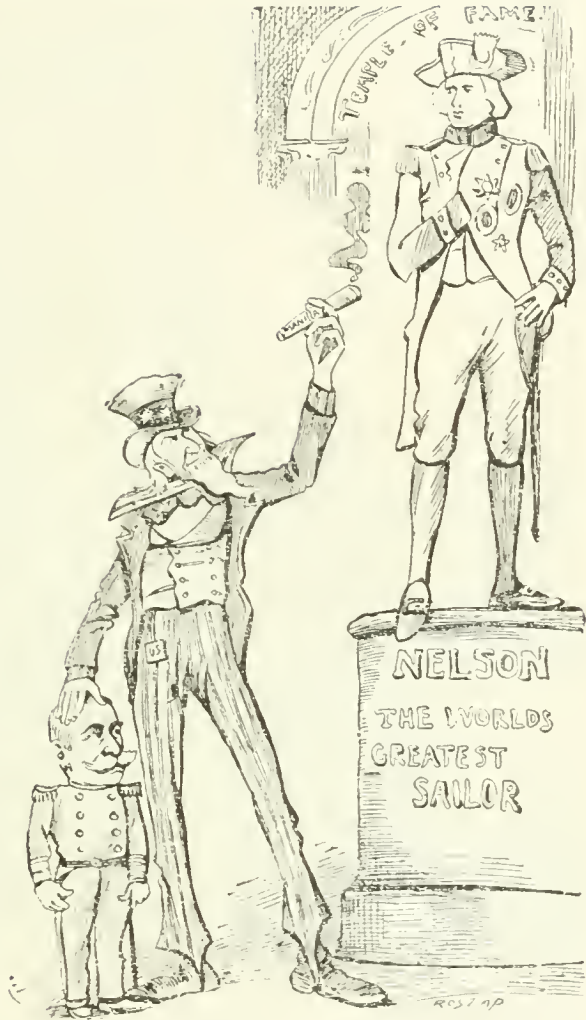 TEMPLE OF FAME.
MANILA
US
NELSON
THE WORLDS
GREATEST
SAILOR